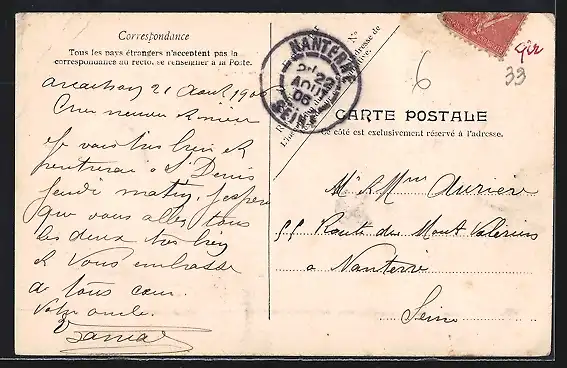 Correspondance
Tous les pays étrangers n'acceptent pas la
correspondance au recto, se renseigner à la Poste.
Arcachon 21 Août 1906
Cher neveu et nièce
Je vais très bien et
rentrerai à St Denis
jeudi matin, j'espère
que vous allez tous
les deux très bien
et vous embrasse
de tout cœur.
Votre oncle.
NANTERRE
22
AOUT
06
SEINE
6
33
CARTE POSTALE
Ce côté est exclusivement réservé à l'adresse.
Mr et Mme Aurière
55 Route du Mont Valérien
à Nanterre
Seine